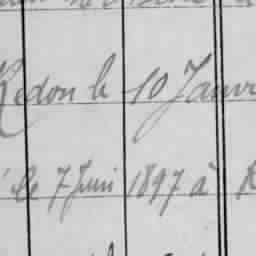 Redon le 10 Janv
le 7 Juin 1897 à R